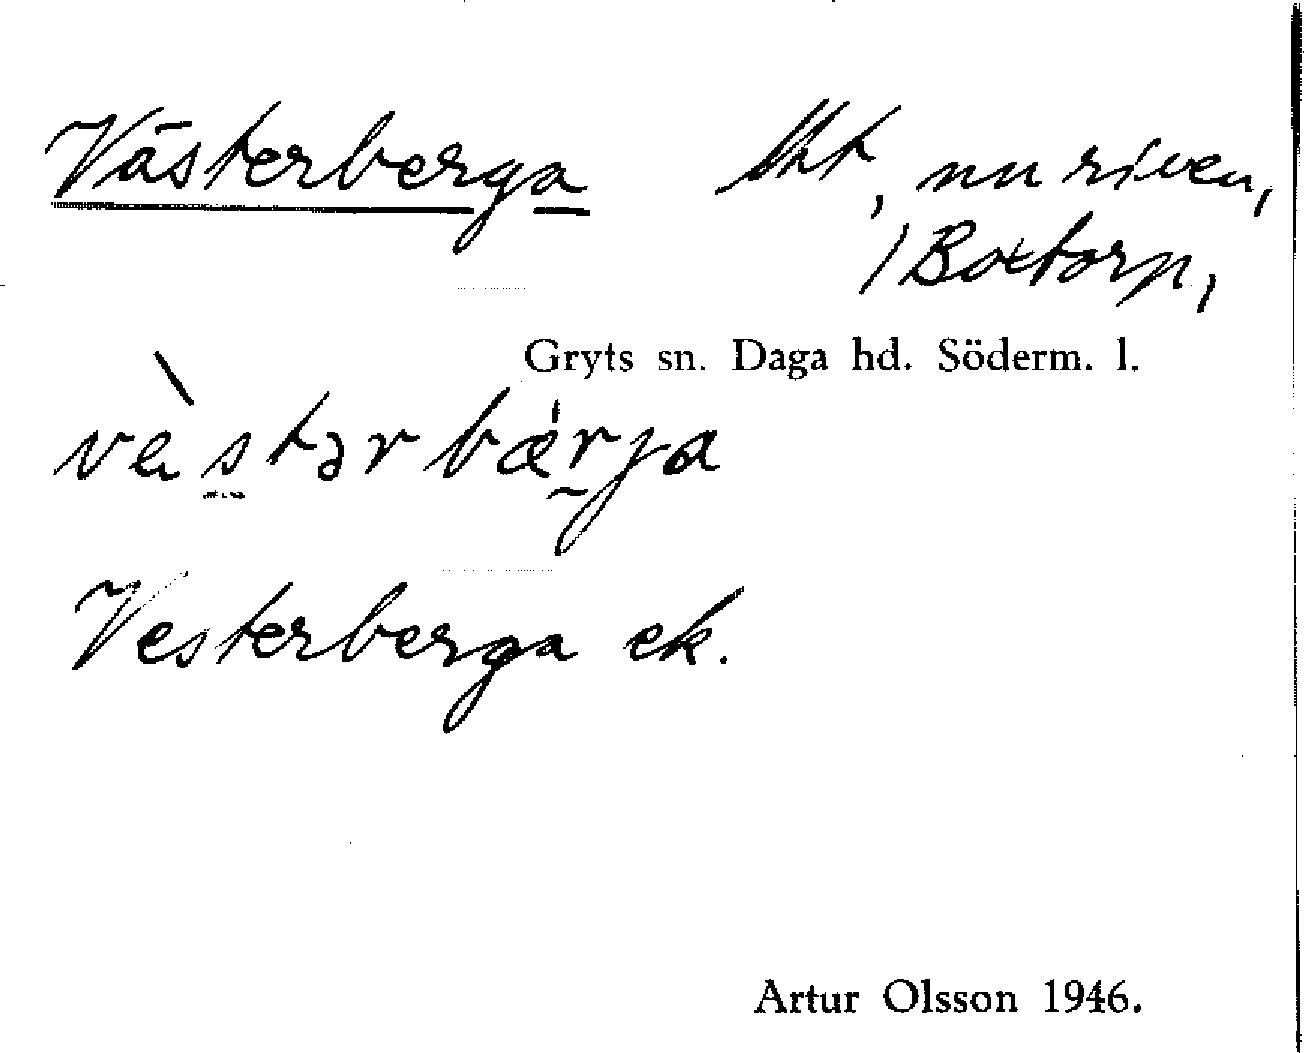 Västerberga lht, nu riven,
/Boxtorp,
Gryts sn. Daga hd. Söderm. l.
Vesterberga ek.
Artur Olsson 1946.